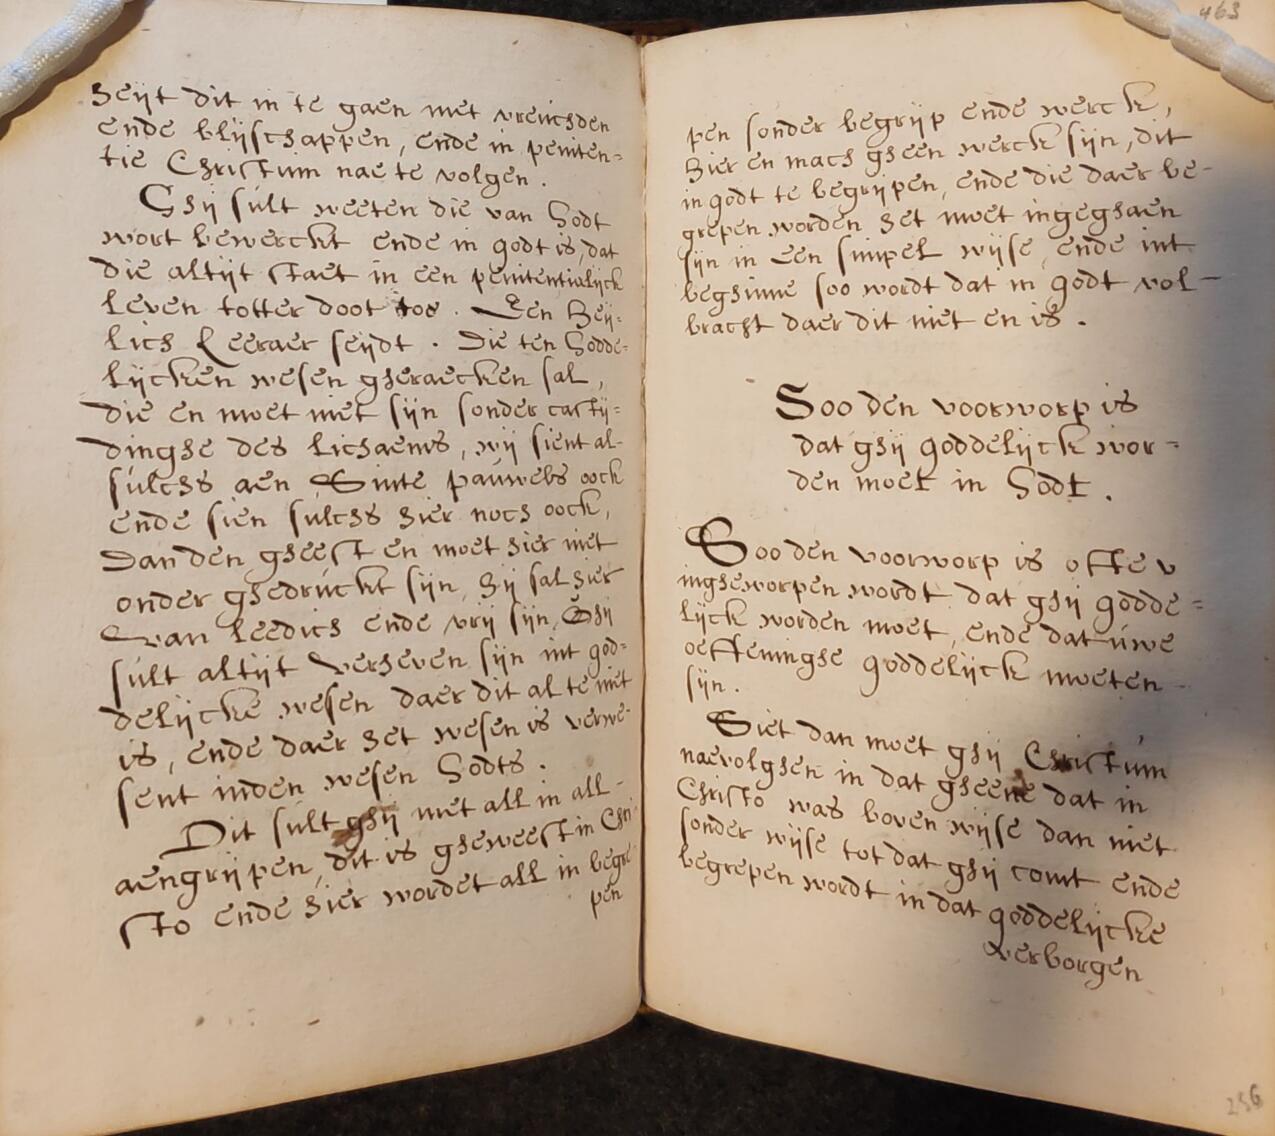 heijt dit in te gaen met vreuchden
ende blijschappen, ende in peniten=
tie Christum nae te volgen.
Ghij sult weeten die van Godt
wort bewerckt ende in godt is, dat
die altijt staet in een penitentialijck
leven totter doot toe. Een Heij=
lich Leeraer seijdt. Die ten Godde=
lijcken wesen gheraecken sal,
die en moet niet sijn sonder castij=
dinghe des lichaems, wij sient al-
sulchs aen Sinte pauwels oock
ende sien sulchs hier noch oock,
Dan den gheest en moet hier niet
onder ghedruckt sijn, hij sal hier
van leedich ende vrij sijn, Ghij
sult altijt verheven sijn int god=
delijcke wesen daer dit al te niet
is, ende daer het wesen is verwe-
sent inden wesen Godts.
Dit sult ghij met all in all-
aengrijpen, dit is gheweest in Chri
sto ende hier wordet all in begre
pen
463
pen sonder begrijp ende werck,
hier en mach gheen werck sijn, dit
in godt te begrijpen, ende die daer be-
grepen worden het moet ingeghaen
sijn in een simpel wijse, ende int
beghinne soo wordt dat in godt vol-
bracht daer dit niet en is.
Soo den voorworp is
dat ghij goddelijck wor=
den moet in Godt.
Soo den voorworp is ofte v
ingheworpen wordt dat ghij godde=
lijck worden moet, ende dat uwe
oeffeninghe goddelijck moeten
sijn.
Siet dan moet ghij Christum
naevolghen in dat gheene dat in
Christo was boven wijse dan niet
sonder wijse tot dat ghij comt ende
begrepen wordt in dat goddelijcke
verborgen
256